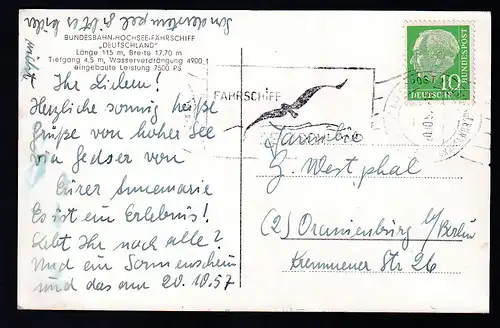 Sonderstempel gibt es leider
nicht
BUNDESBAHN-HOCHSEE-FÄHRSCHIFF
„DEUTSCHLAND"
Länge 115 m, Breite 17,70 m
Tiefgang 4,5 m, Wasserverdrängung 4900 t
eingebaute Leistung 7500 PS
Ihr Lieben!
Herzliche sonnig heiße
Grüße von hoher See
via Gedser von
Eurer Annemarie
Es ist ein Erlebnis!
Lebt Ihr noch alle?
Und ein Sonnenschein
und das am 20.10.57
FÄHRSCHIFF
DEUTSCHE BUNDESPOST
10
Familie
G. Westphal
(2) Oranienburg b/Berlin
Kremmener Str 26